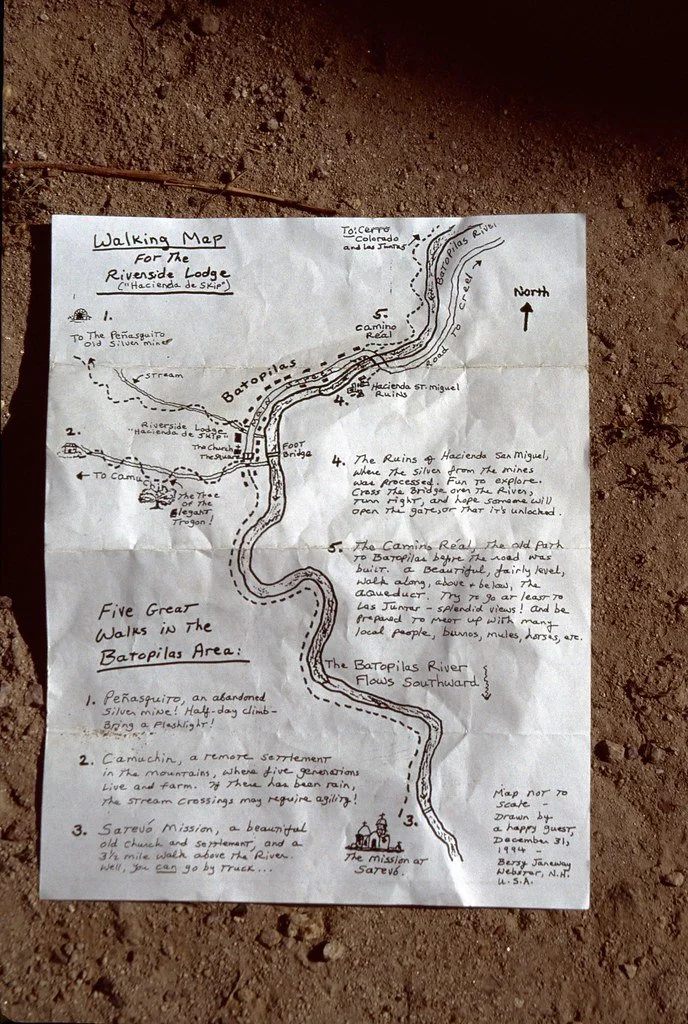 Walking Map
For The
Riverside Lodge
("Hacienda de Skip")
To: Cerro
Colorado
and Las Juntas
Batopilas River
Road To Creel
North
1.
To The Peñasquito
Old Silver mine
Stream
5.
Camino
Réal
Batopilas
Main Street
Hacienda St. Miguel
Ruins
4.
Riverside Lodge
"Hacienda de Skip"
The Church
The Square
Foot
Bridge
2.
To Camuchin
The Tree
of The
Elegant
Trogon!
4. The Ruins of Hacienda San Miguel,
where the silver from the mines
was processed. Fun to explore.
Cross the Bridge over the River,
turn right, and hope someone will
open the gate, or that it's unlocked.
5. The Camino Réal, The old Path
to Batopilas before the road was
built. A Beautiful, fairly level,
walk along, above + below, The
aqueduct. Try to go at least to
Las Juntas - splendid views! And be
prepared to meet up with many
local people, burros, mules, horses, etc.
Five Great
Walks in The
Batopilas Area:
The Batopilas River
Flows Southward
1. Peñasquito, an abandoned
Silver mine! Half-day climb-
Bring a Flashlight!
2. Camuchin, a remote settlement
in the mountains, where five generations
live and farm. If There has been rain,
the stream crossings may require agility!
3. Satevó Mission, a beautiful
old Church and settlement, and a
3½ mile walk above the River.
Well, you can go by truck...
3.
The Mission at
Satevó.
Map not to
scale -
Drawn by
a happy guest,
December 31,
1994
Betsy Janeway
Webster, N.H.
U.S.A.